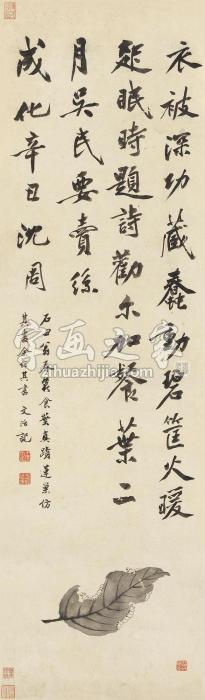 衣被深功藏蠢動碧筐火暖
起眠時題詩勸尔加餐葉二
月吳民要賣絲
成化辛丑沈周
石田翁蚕食葉真蹟蓮巢仿
其畫余仿其書文治記
字画之家
zihuazhijia.com